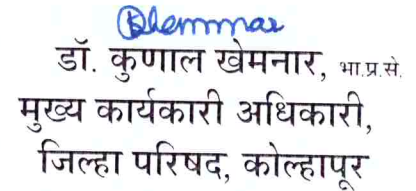 डॉ. कुणाल खेमनार, भा.प्र.से.
मुख्य कार्यकारी अधिकारी,
जिल्हा परिषद, कोल्हापूर